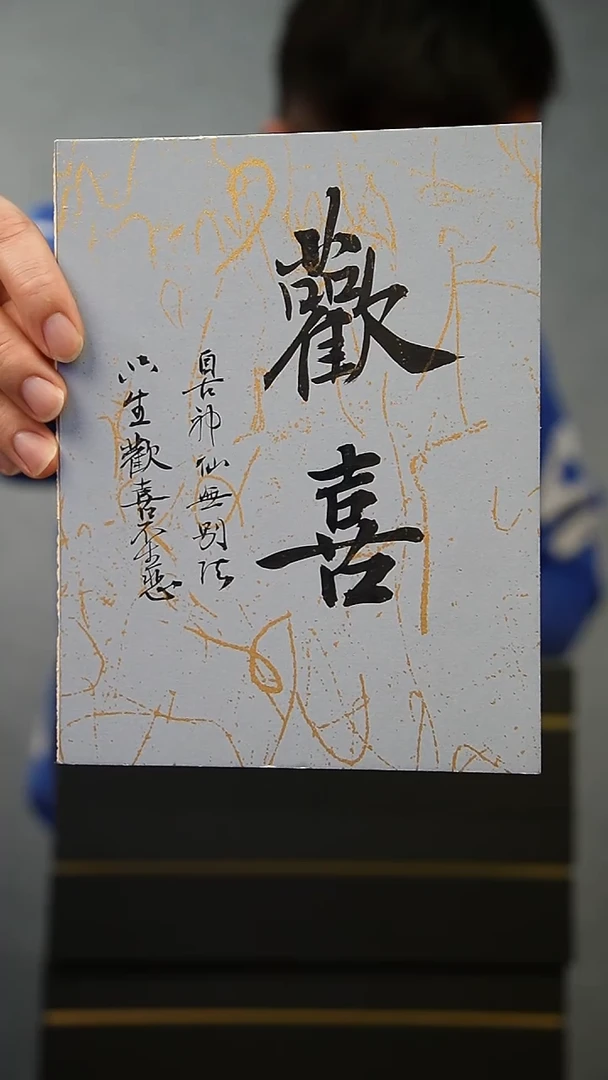 歡喜
自古神仙無別法
只生歡喜不生愁